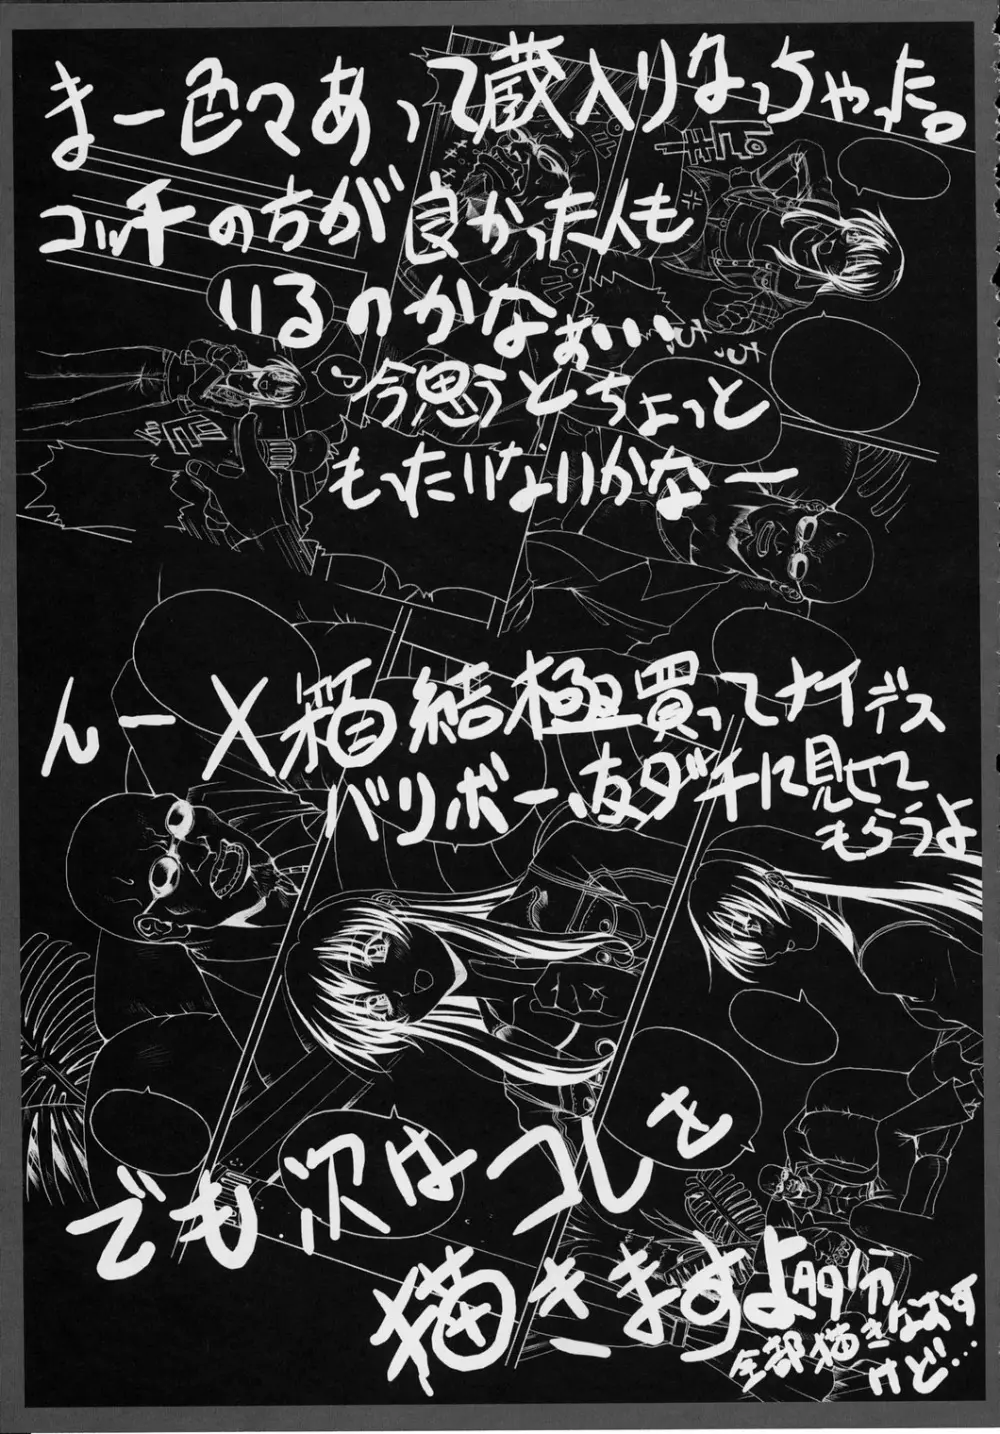 まー色々あって蔵入りなっちゃった。
コッチの方が良かった人も
いるのかなぁ…、
今思うとちょっと
もったいないかなー
んーX箱結極買ってナイデス
バリボー、友ダチに見せて
もらうよ
でも次はコレを
描きますよ
多分
全部描きなおす
けど…